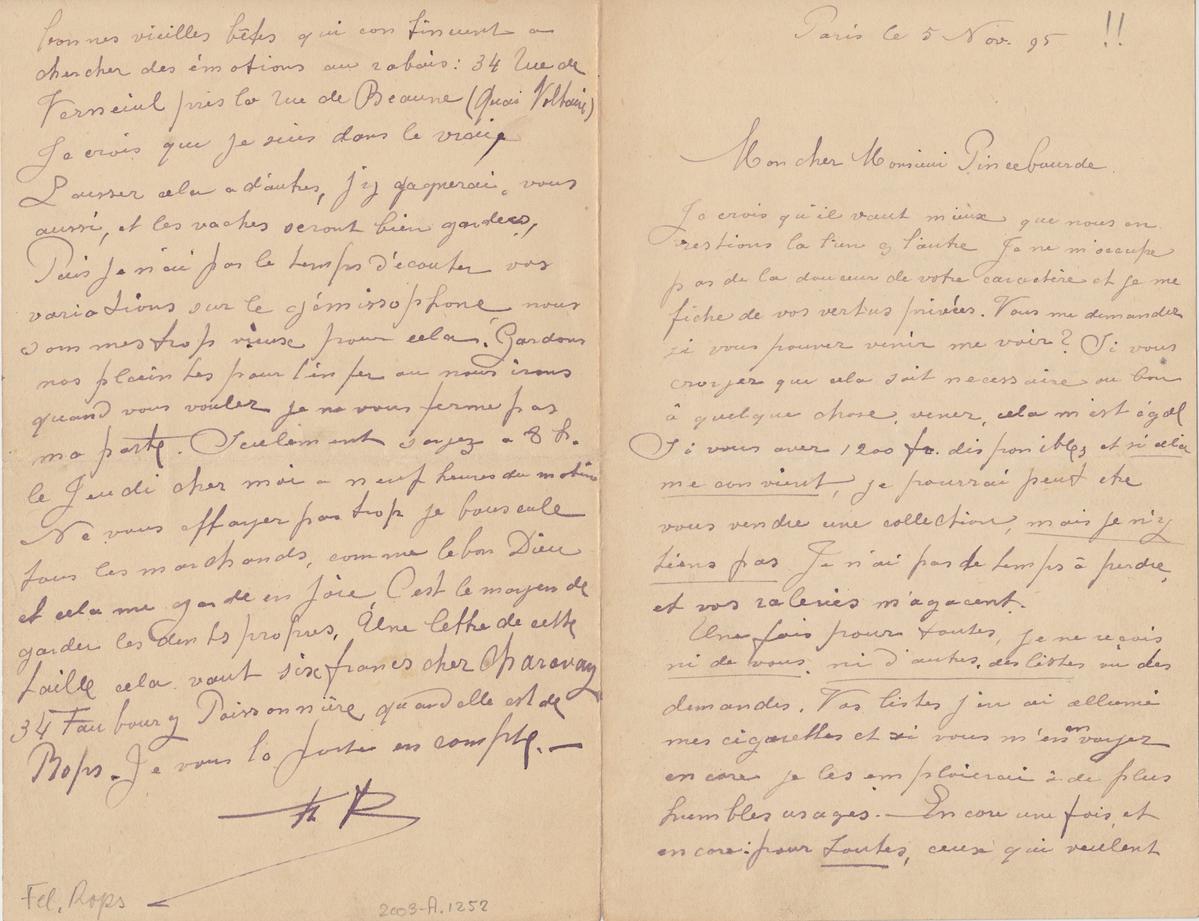 Paris le 5 Nov. 95 !!
Mon cher Monsieur Pincebourde
Je crois qu'il vaut mieux que nous en
restions là l'un & l'autre Je ne m'occupe
pas de la douceur de votre caractère et je me
fiche de vos vertus privées. Vous me demandez
si vous pouvez venir me voir? Si vous
croyez que cela soit necessaire ou bon
à quelque chose, venez, cela m'est égal
Si vous avez 1200 fr. disponibles et si cela
me convient, je pourrai peut etre
vous vendre une collection, mais je n'y
tiens pas Je n'ai pas le temps à perdre,
et vos raleries m'agacent.
Une fois pour toutes, je ne reçois
ni de vous, ni d'autres, des listes ou des
demandes. Vos listes j'en ai allumé
mes cigarettes et si vous m'en envoyez
encore je les emploierai à de plus
humbles usages. — Encore une fois, et
encore: pour toutes, ceux qui veulent
bonnes vieilles bêtes qui continuent a
chercher des émotions au rabais: 34 Rue de
Verneuil près la rue de Beaune (Quai Voltaire)
Je crois que je suis dans le vrai,
Laissez cela a d'autres, j'y gagnerai, vous
aussi, et les vaches seront bien gardées,
Puis je n'ai pas le temps d'écouter vos
variations sur le gémissophone, nous
sommes trop vieux pour cela. Gardons
nos plaintes pour l'enfer ou nous irons
quand vous voulez je ne vous ferme pas
ma porte. Seulement soyez a 8 h.
le Jeudi chez moi a neuf heures du matin
Ne vous effrayez pas trop je bouscule
tous les marchands, comme le bon Dieu
et cela me garde en joie C'est le moyen de
garder les dents propres. Une lettre de cette
taille cela vaut six francs chez Charavay
34 Faubourg Poissonnière, quand elle est de
Rops. Je vous la porte en compte. —
FR
Fél. Rops
2003-A.1252